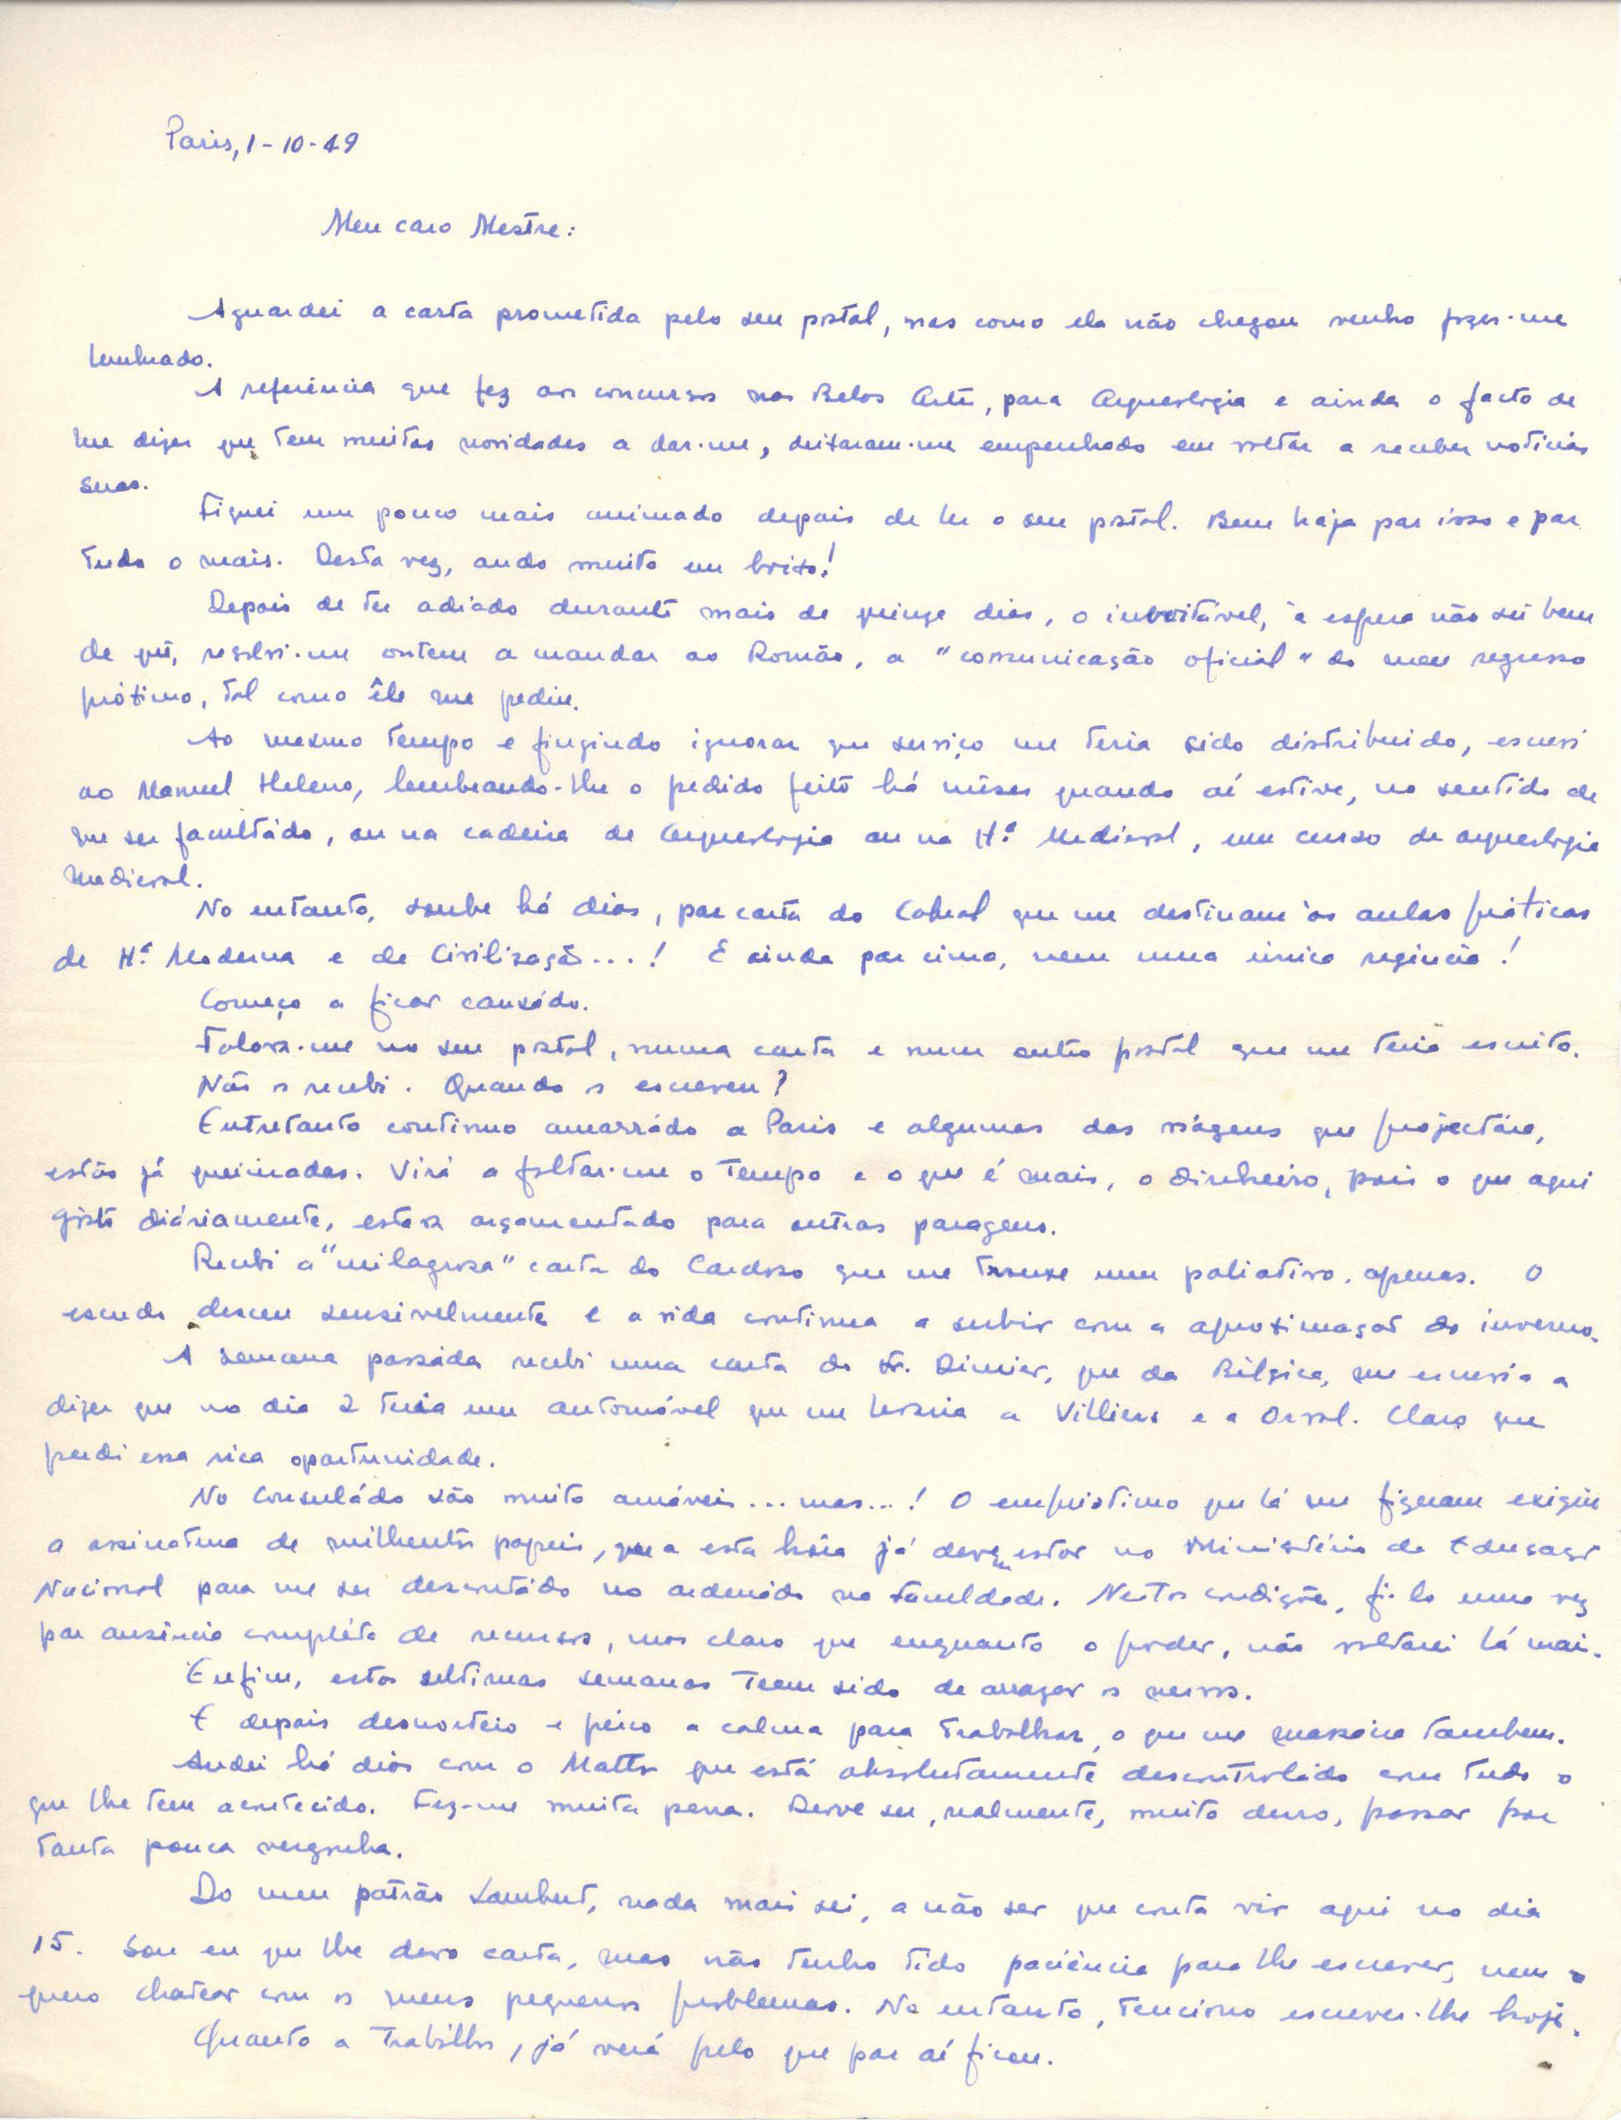 Paris, 1-10-49
Meu caro Mestre:
Aguardei a carta prometida pelo seu postal, mas como ela não chegou venho fazer-me
lembrado.
A referência que fez aos concursos nas Belas Artes, para Arqueologia e ainda o facto de
me dizer que tem muitas novidades a dar-me, deixaram-me empenhado em voltar a receber notícias
suas.
Fiquei um pouco mais animado depois de ler o seu postal. Bem haja por isso e por
tudo o mais. Desta vez, ando muito em baixo!
Depois de ter adiado durante mais de quinze dias, o inevitável, à espera não sei bem
de quê, resolvi-me ontem a mandar ao Romão, a "comunicação oficial" do meu regresso
próximo, tal como êle me pediu.
Ao mesmo tempo e fingindo ignorar que serviço me teria sido distribuido, escrevi
ao Manuel Heleno, lembrando-lhe o pedido feito há mêses quando aí estive, no sentido de
me ser facultádo, ou na cadeira de Arqueologia ou na Hª Medieval, um curso de arqueologia
medieval.
No entanto, soube há dias, por carta do Cabral que me destinam às aulas práticas
de Hª Moderna e de Civilização...! E ainda por cima, nem uma única regência!
Começo a ficar cansádo.
Falava-me no seu postal, numa carta e num outro postal que me teria escrito.
Não os recebi. Quando os escreveu?
Entretanto continuo amarrádo a Paris e algumas das viágens que projectára,
estão já queimadas. Virá a faltar-me o tempo e o que é mais, o dinheiro, pois o que aqui
gasto diáriamente, estava orçamentado para outras paragens.
Recebi a "milagrosa" carta do Cardoso que me trouxe um paliativo, apenas. O
escudo desceu sensivelmente e a vida continua a subir com a aproximação do inverno.
A semana passáda recebi uma carta do Sr. Dimier, que da Bélgica, me escrevia a
dizer que no dia 2 teria um automóvel que me levaria a Villiers e a Orval. Claro que
perdi essa rica oportunidade.
No Consuládo são muito amáveis... mas...! O empréstimo que lá me fizeram exigiu
a assinatura de milhentos papeis, que a esta hora já devem estar no Ministério da Educação
Nacional para me ser descontádo no ordenádo na Faculdade. Nestas condições, fi-lo uma vez
por ausência compléta de recursos, mas claro que enquanto o poder, não voltarei lá mais.
Enfim, estas ultimas semanas teem sido de arrazar os nervos.
E depois desnorteio e perco a calma para trabalhar, o que me massacra tambem.
Andei há dias com o Mattos que está absolutamente descontroládo com tudo o
que lhe tem acontecido. Fez-me muita pena. Deve ser, realmente, muito duro, passar por
tanta pouca vergonha.
Do meu patrão Lambert, nada mais sei, a não ser que conta vir aqui no dia
15. Sou eu que lhe devo carta, mas não tenho tido paciência para lhe escrever, nem o
quero chatear com os meus pequenos problemas. No entanto, tenciono escrever-lhe hoje.
Quanto a trabalhos, já verá pelo que por aí ficou.